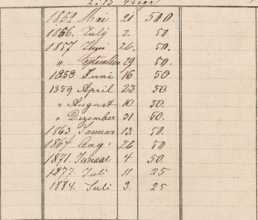 1852 Mai 20 500
1856. Julÿ 2. 50
1857 Juni 26. 50.
" September 29 50.
1858 Juni 16 50
1859 April 23 50
" August 10 50.
" Dezember 31 50.
1863 Januar 13 50.
1867 Aug 26 50
1871 Januar 4 50.
1877. Juli 11 25
1884. Juli 3. 25